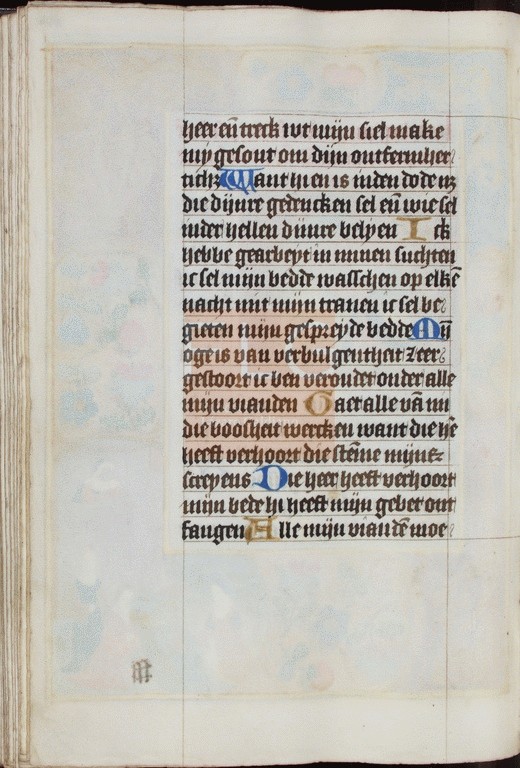 heer eñ treck wt mijn siel make
my gesont om dijn ontfermher
ticħz Want hi en is inden dode nz
die dijnre gedencken sel eñ wie sel
inder hellen dijnre belyen Ick
hebbe gearbeyt in minen suchten
ic sel mijn bedde wasschen op elkē
nacht mit mijn tranen ic sel be
gieten mijn gespreyde bedde Mijn
oge is van verbulgentheit zeer
gestoort ic ben verouder onder alle
mijn vianden Gaet alle vā mi
die boosheit wercken want die hē
heeft verhoort die stēme mijns
screyens Die heer heeft verhoort
mijn bede hi heeft mijn gebet ont
fangen Alle mijn viandē moe